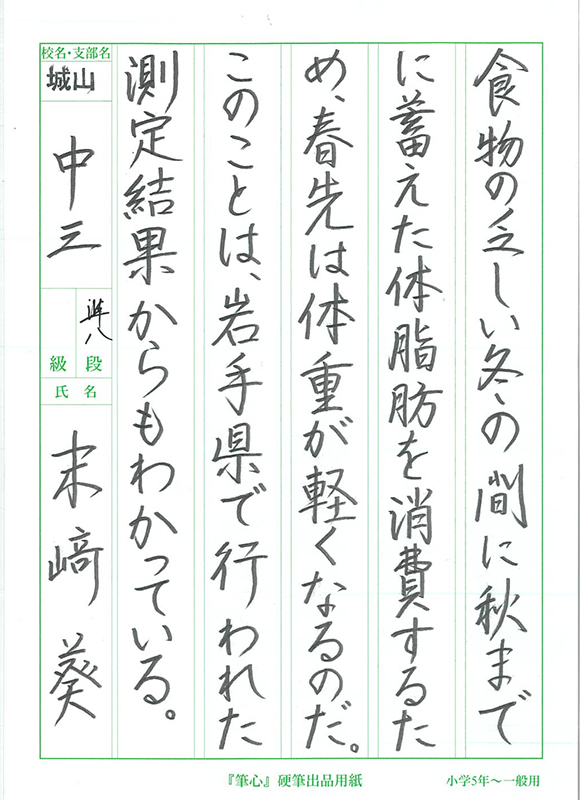 食物の乏しい冬の間に秋まで
に蓄えた体脂肪を消費するた
め、春先は体重が軽くなるのだ。
このことは、岩手県で行われた
測定結果からもわかっている。
校名・支部名
城山
中三
準八
段
級
氏名
末﨑葵
『筆心』硬筆出品用紙
小学5年〜一般用